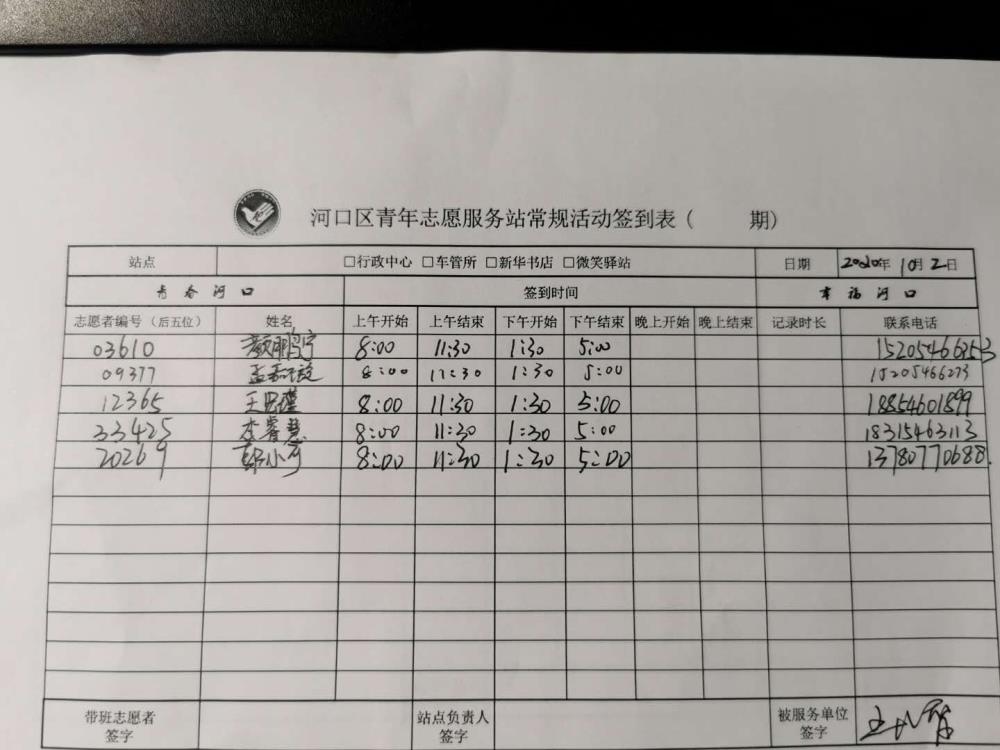 河口区青年志愿服务站常规活动签到表（ 期）
站点 □行政中心 □车管所 □新华书店 □微笑驿站 日期 2020年 10月 2日
青春河口 签到时间 幸福河口
志愿者编号（后五位） 姓名 上午开始 上午结束 下午开始 下午结束 晚上开始 晚上结束 记录时长 联系电话
03610 8:00 11:30 1:30 5:00
09377 8:00 11:30 1:30 5:00 15205466273
12365 8:00 11:30 1:30 5:00 18854601899
33425 李睿慧 8:00 11:30 1:30 5:00 18315463113
20269 8:00 11:30 1:30 5:00 13780770688.
带班志愿者签字 站点负责人签字 被服务单位签字